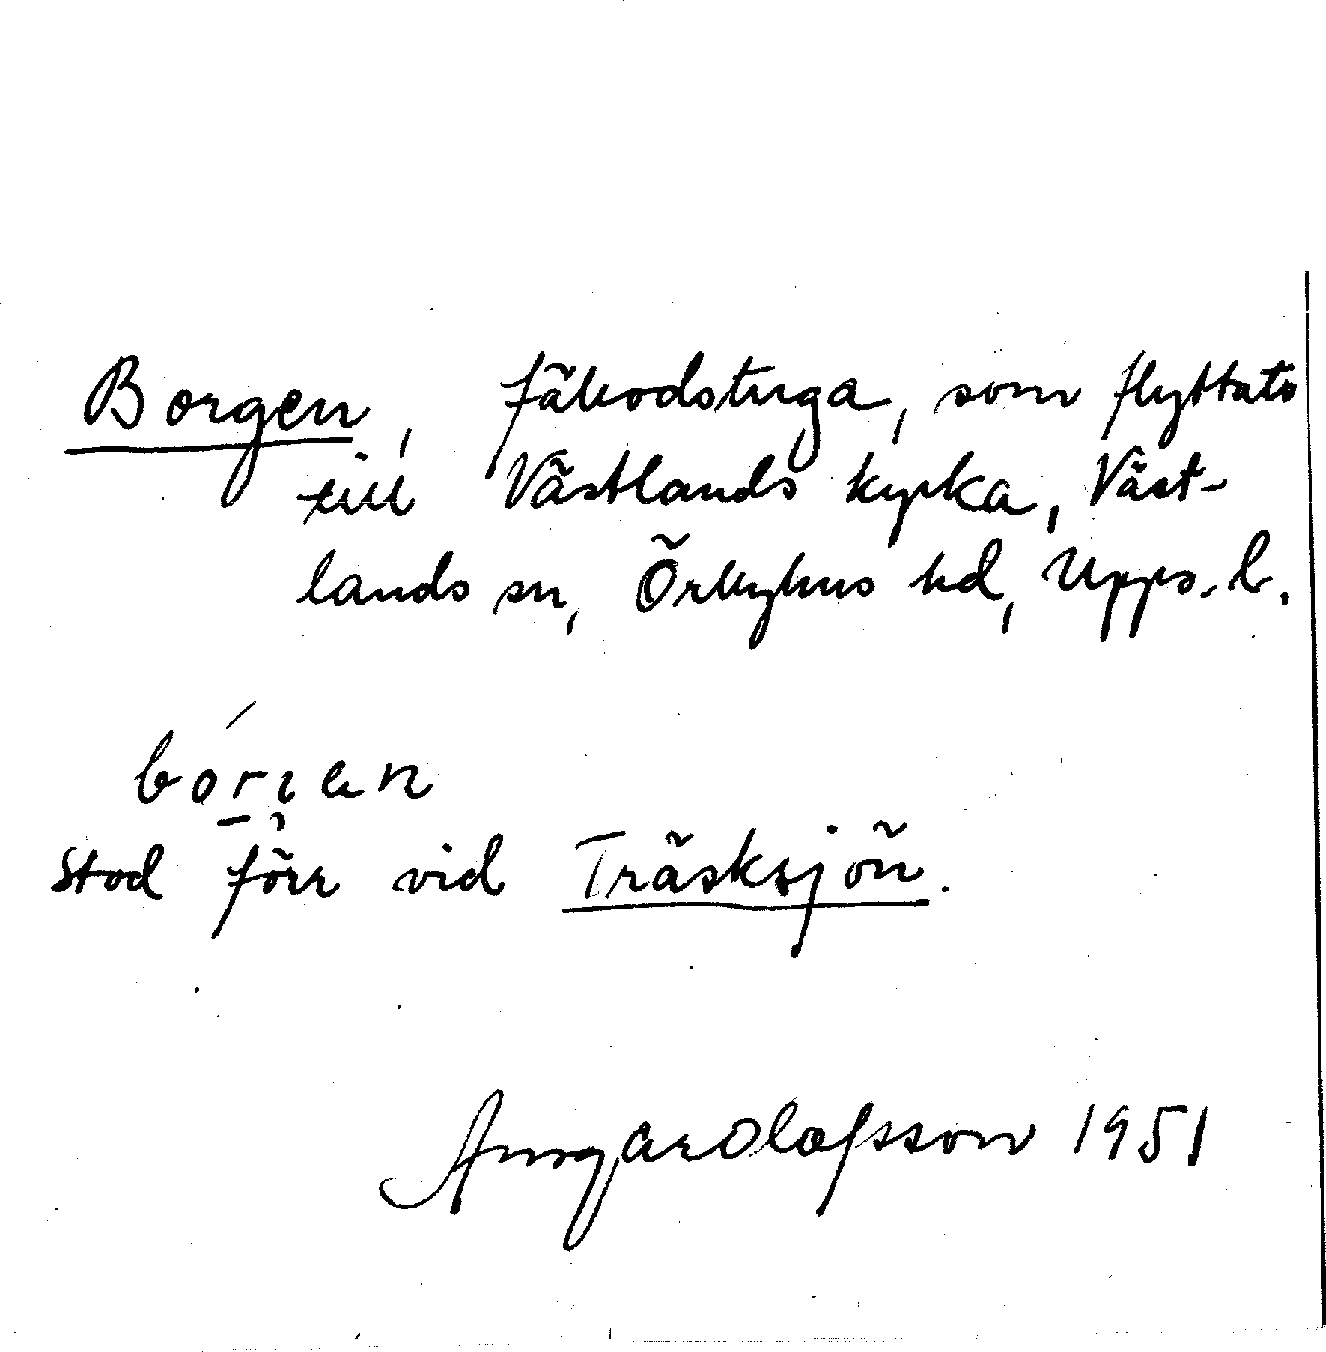 Borgen, fäbodstuga, som flyttats
till Västlands kyrka, Väst-
lands sn, Örbyhus hd, Upps. l.
bórıɛn
Stod förr vid Träsksjön.
Ansgar Olafsson 1951